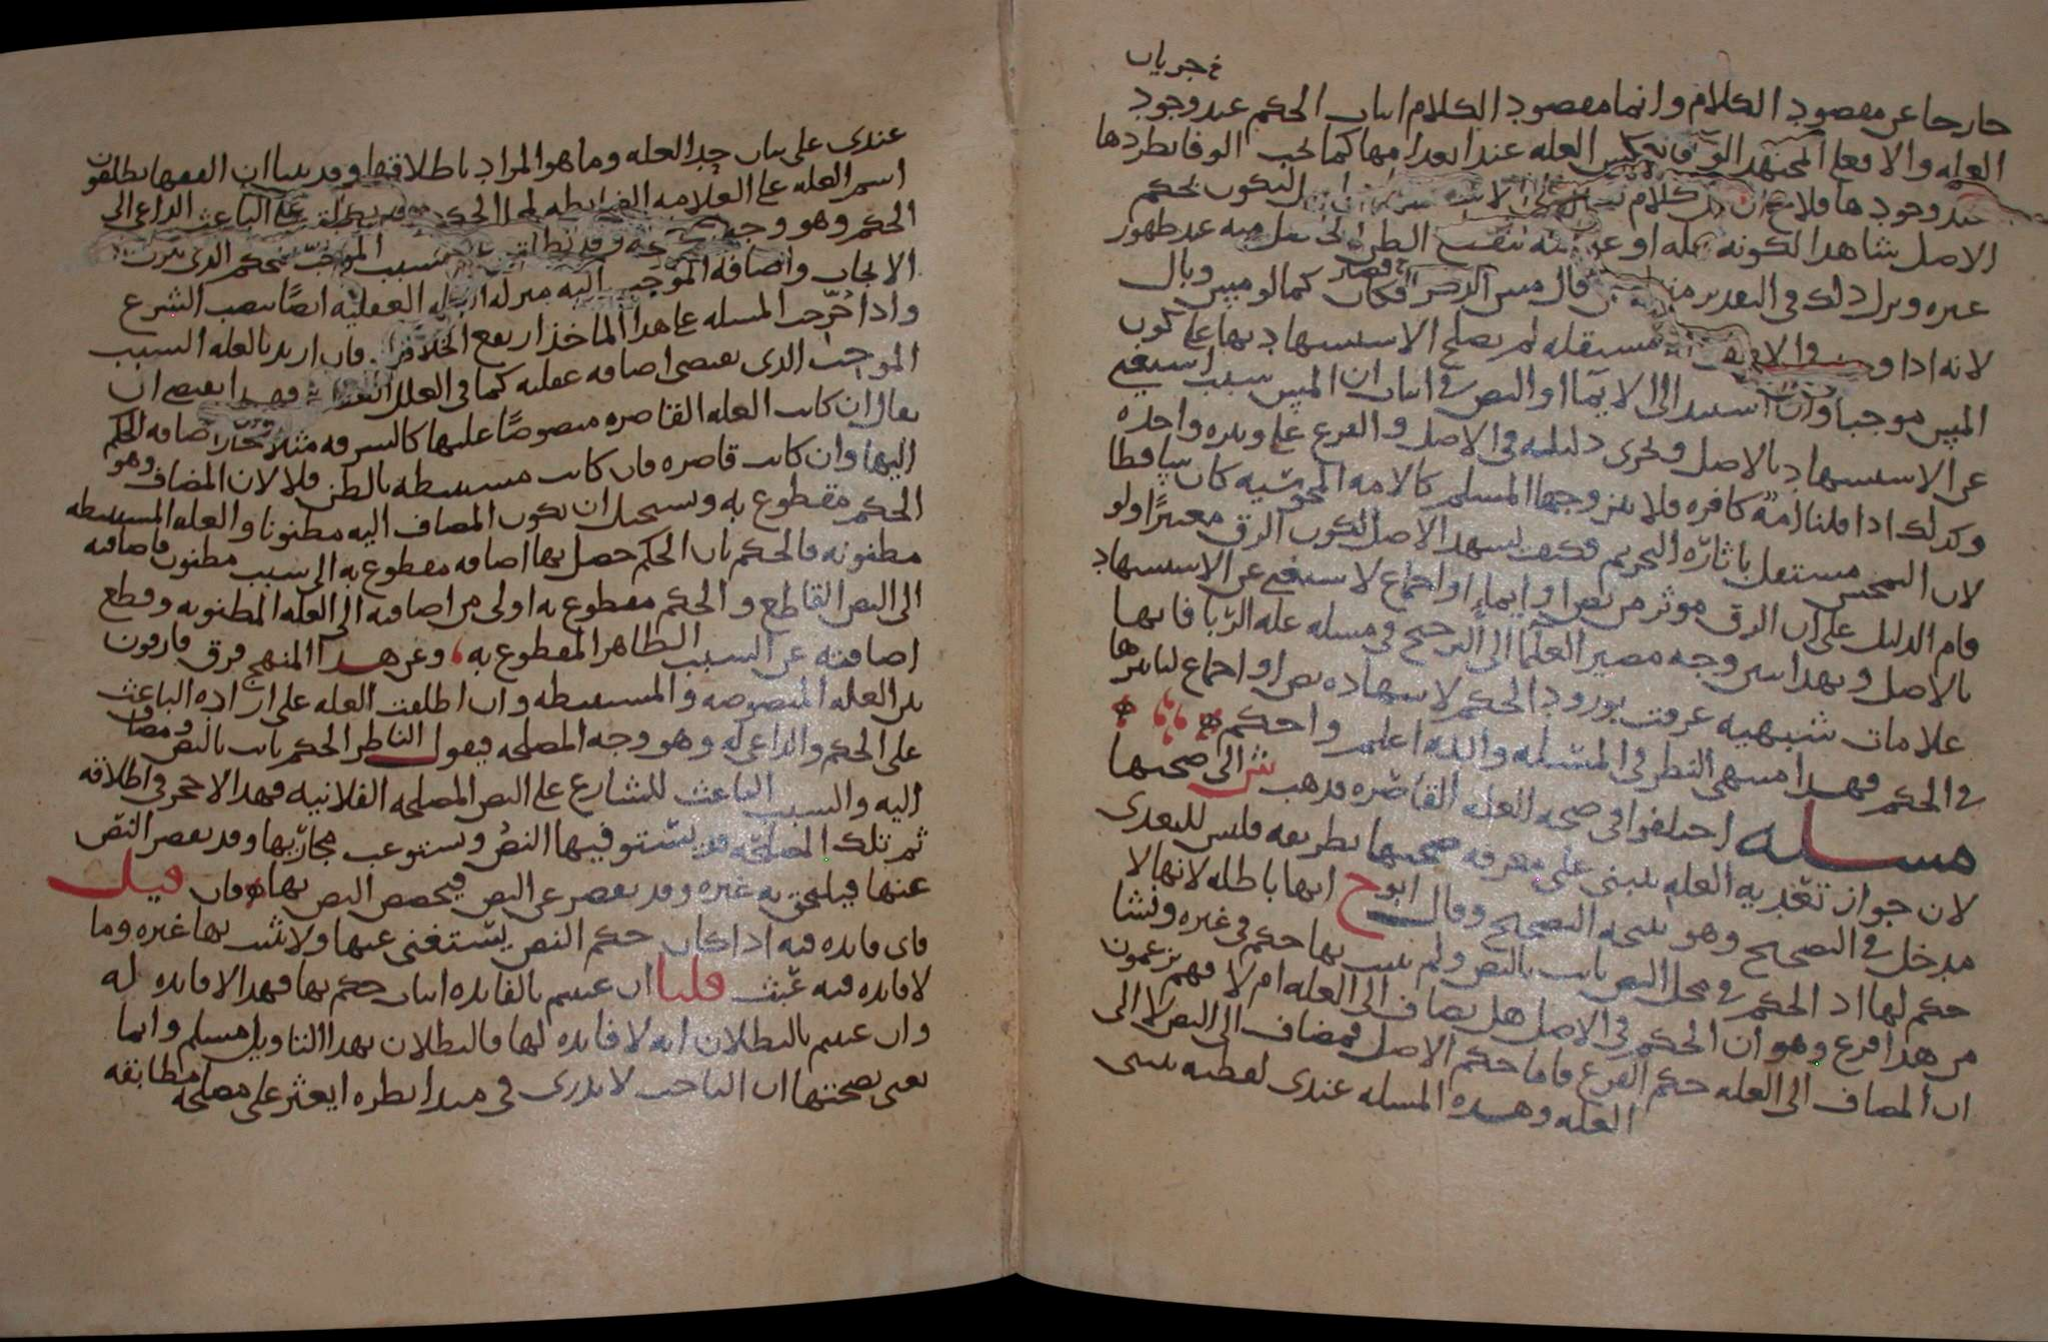 خ جريان
خارجا عن مقصود الكلام وانما مقصود الكلام اثبات الحكم عند وجود
العله والا فعلى المجتهد الوفا العله عند انعدامها كما يجب الوفا بطردها
عند وجودها فلا كلام ليكون بحكم
الاصل شاهدا لكونه عله او عند ظهور
غيره ونزل ذلك في التقدير قال مس الذكر فكان كما لو مس وبال
لانه اذا مستقله لم يصلح الاستشهاد بها على كون
المس موجبا وان استند الى الايما او النص في اثبات ان المس سبب استغنى
عن الاستشهاد بالاصل وتجرى دليله في الاصل والفرع على وتيره واحده
وكذلك اذا قلنا امة كافره فلا يتزوجها المسلم كالامه المجوسيه كان ساقطا
لان التمجس مستقل باثاره التحريم فكيف يشهد الاصل لكون الرق معتبرا ولو
قام الدليل على ان الرق موثر من نص او ايماء او اجماع لاستغنى عن الاستشهاد
بالاصل وبهذا يتبين وجه مصير العلما الى الترجيح في مسله عله الربا فانها
علامات شبهيه عرفت بورود الحكم لا بشهاده نص او اجماع لتاثيرها
في الحكم فهذا منتهى النظر في المسله والله اعلم واحكم
مسله اختلفوا في صحه العله القاصره فذهب ش الى صحتها
لان جواز تعديه العله يبتنى على معرفه صحتها بطريقه فليس للتعدى
مدخل في التصحيح وهو نتيجه التصحيح وقال ابو ح انها باطله لانها لا
حكم لها اذ الحكم في محل النص ثابت بالنص ولم يثبت بها حكم في غيره ونشا
من هذا فرع وهو ان الحكم في الاصل هل يضاف الى العله ام لا فهم يزعمون
ان المضاف الى العله حكم الفرع فاما حكم الاصل فمضاف الى النص لا الى
العله وهذه المسله عندى لفظيه تبتنى
عندى على بيان حد العله وما هو المراد باطلاقها وقد بينا ان الفقها يطلقون
اسم العله على العلامه الضابطه لمحل الحكم وقد يطلق على الباعث الداعى الى
الحكم وهو وجه وقد يطلق السبب الموجب للحكم الذى ينزل
الايجاب واضافه الموجب اليه منزله العله العقليه ايضا بنصب الشرع
واذا خرجت المسله على هذا الماخذ ارتفع الخلاف فان اريد بالعله السبب
الموجب الذى يقتضى اضافه عقليه كما في العلل فهذا يقتضى ان
يقال ان كانت العله القاصره منصوصا عليها كالسرقه مثلا جاز اضافه الحكم
اليها وان كانت قاصره فان كانت مستنبطه بالظن فلا لان المضاف وهو
الحكم مقطوع به ويستحيل ان يكون المضاف اليه مظنونا والعله المستنبطه
مظنونه فالحكم بان الحكم حصل بها اضافه مقطوع به الى سبب مظنون فاضافته
الى النص القاطع والحكم مقطوع به اولى من اضافته الى العله المظنونه وقطع
اضافته عن السبب الظاهر المقطوع به وعن هذا المنهج فرق فارقون
بين العله المنصوصه والمستنبطه وان اطلقت العله على اراده الباعث
على الحكم والداعى له وهو وجه المصلحه فيقول الناظر الحكم ثابت بالنص ومضاف
اليه والسبب الباعث للشارع على النص المصلحه الفلانيه فهذا لا حجر في اطلاقه
ثم تلك المصلحه قد يستوفيها النص ويستوعب مجاريها وقد يقصر النص
عنها فيلحق به غيره وقد يقصر عن النص فيخصص النص بها فان قيل
فاى فايده فيه اذا كان حكم النص يستغنى عنها ولا يثبت بها غيره وما
لا فايده فيه عبث قلنا ان عنيتم بالفايده اثبات حكم بها فهذا لا فايده له
وان عنيتم بالبطلان انه لا فايده لها فالبطلان بهذا التاويل مسلم وانما
نعنى بصحتها ان الباحث لا يدرى في مبدا نظره ايعثر على مصلحه مطابقه